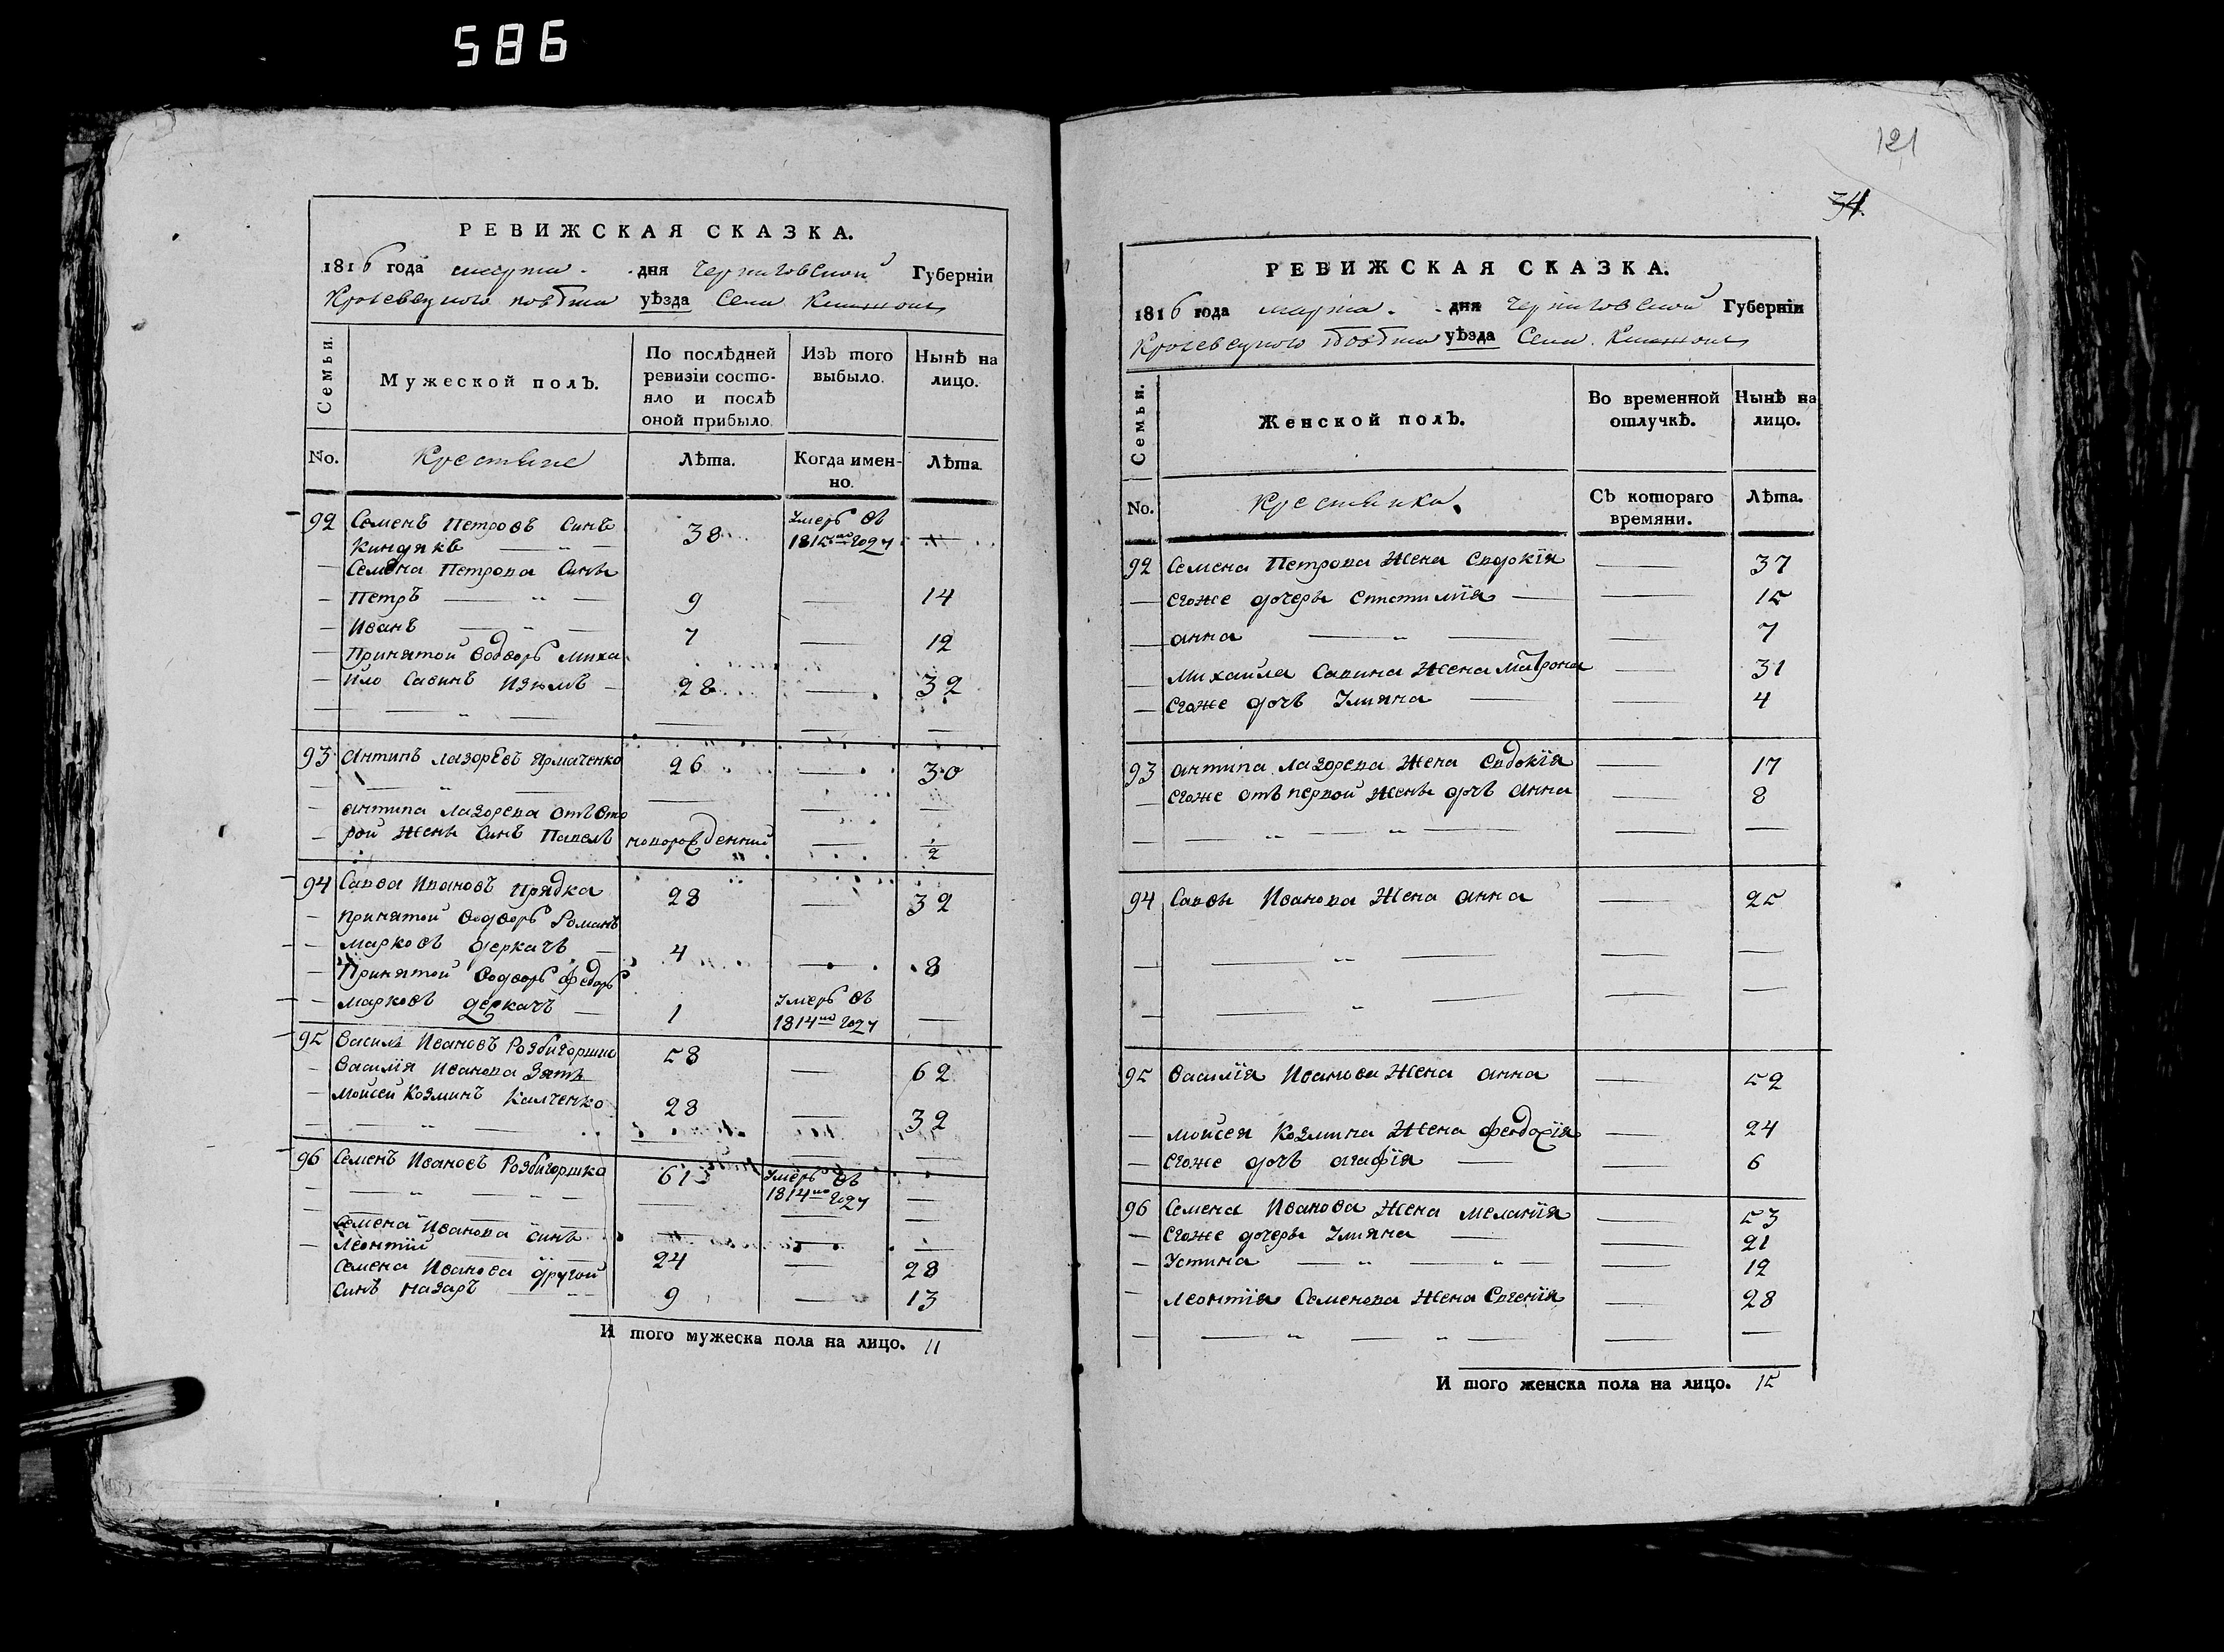 586
РЕВИЖСКАЯ СКАЗКА.
1816 года марта дня Черниговской Губерніи
Кролевецкого повѣта уѣзда Села
Семьи.
Мужеской полъ.
По послѣдней ревизіи состояло и послѣ оной прибыло.
Изъ того выбыло.
Нынѣ на лицо.
No. Крестяне Лѣта. Когда именно. Лѣта.
92 Семенъ Петровъ Синъ 38 Умеръ въ —
1815мъ году
Семена Петрова Сины
— Петръ — 9 — 14
— Иванъ — 7 — 12
— Принятой Водворъ Миха
— йло Савинъ — 28 — 32
93 Антипъ Лазоревъ Ярмаченко 26 — 30
— Антипа Лазорева отъ вто
— рой жены Синъ Павелъ новорожденний — ½
94 Савва Ивановъ Прядка 28 — 32
— принятой Водворъ Романъ
— Марковъ Деркачъ — 4 — 8
— Принятой Водворъ Федоръ
— Марковъ Деркачъ — 1 Умеръ въ 1814мъ году —
95 Василь Ивановъ 58 — 62
— Василія Иванова Зять
— Мойсей Козминъ Калченко 28 — 32
96 Семенъ Ивановъ 61 Умеръ въ 1814мъ году —
Семена Иванова синъ
— Леонтій 24 — 28
Семена Иванова другой
Синъ Назаръ — 9 — 13
И того мужеска пола на лицо. 11
121
34
РЕВИЖСКАЯ СКАЗКА.
1816 года марта. дня Черниговской Губерніи
Кролевецкого Повѣта уѣзда Села
Семьи.
Женской полъ.
Во временной отлучкѣ.
Нынѣ на лицо.
No. Крестянки. Съ котораго времяни. Лѣта.
92 Семена Петрова Жена Евдокія — 37
— Егоже дочеры — 15
— Анна — 7
— Михайла Савина Жена Матрона — 31
— Егоже дочь Улияна — 4
93 Антипа Лазорева Жена Евдокія — 17
— Егоже отъ первой Жены дочь Анна — 8
94 Саввы Иванова Жена Анна — 25
95 Василія Иванова Жена Анна — 52
— Мойсея Козмина Жена Феодосія — 24
— Егоже дочь Агафія — 6
96 Семена Иванова Жена Меланія — 53
— Егоже дочеры Улияна — 21
— Устина — 12
— Леонтія Семенова Жена Евгенія — 28
И того женска пола на лицо. 15